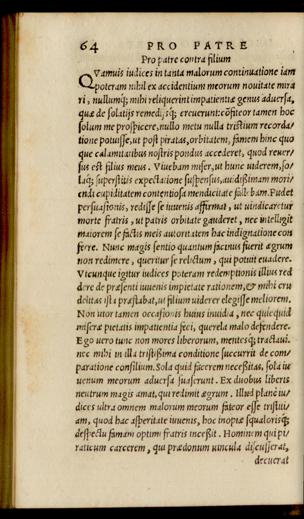 64 PRO PATRE
Pro patre contra filium
QVamuis iudices in tanta malorum continuatione iam
poteram nihil ex accidentium meorum nouitate mira
ri, nullumq; mihi reliquerint impatientiæ genus aduersa,
quæ de solatijs remedijsq; creuerunt: cōfiteor tamen hoc
solum me prospicere, nullo metu nulla tristium recorda/
tione potuisse, ut post piratas, orbitatem, famem hinc quo
que calamitatibus nostris pondus accederet, quod reuer/
sus est filius meus. Viuebam miser, ut hunc uiderem, so/
laq; superstitis expectatione suspensus, auidissimam mori/
endi cupiditatem contentiosa mendicitate fallebam. Pudet
persuasionis, redisse se iuuenis affirmat, ut uindicaretur
morte fratris, ut patris orbitate gauderet, nec intelligit
maiorem se factis meis autoritatem hac indignatione con
ferre. Nunc magis sentio quantum facinus fuerit ægrum
non redimere, queritur se relictum, qui potuit euadere.
Vtcunque igitur iudices poteram redemptionis illius red
dere de præsenti iuuenis impietate rationem, & mihi cru
delitas ista præstabat, ut filium uiderer elegisse meliorem.
Non utor tamen occasionis huius inuidia, nec quicquid
misera pietatis impatientia feci, querela malo defendere.
Ego uero tunc non mores liberorum, mentesq; tractaui.
nec mihi in illa tristissima conditione succurrit de com/
paratione consilium. Sola quid facerem necessitas, sola iu
uenum meorum aduersa suaserunt. Ex duobus liberis
neutrum magis amat, qui redimit ægrum. Illud planè iu/
dices ultra omnem malorum meorum fateor esse tristiti/
am, quod hac asperitate iuuenis, hoc inopiæ squalorisq;
despectu famam optimi fratris incessit. Hominem qui pi/
raticum carcerem, qui prædonum uincula discusserat,
decuerat